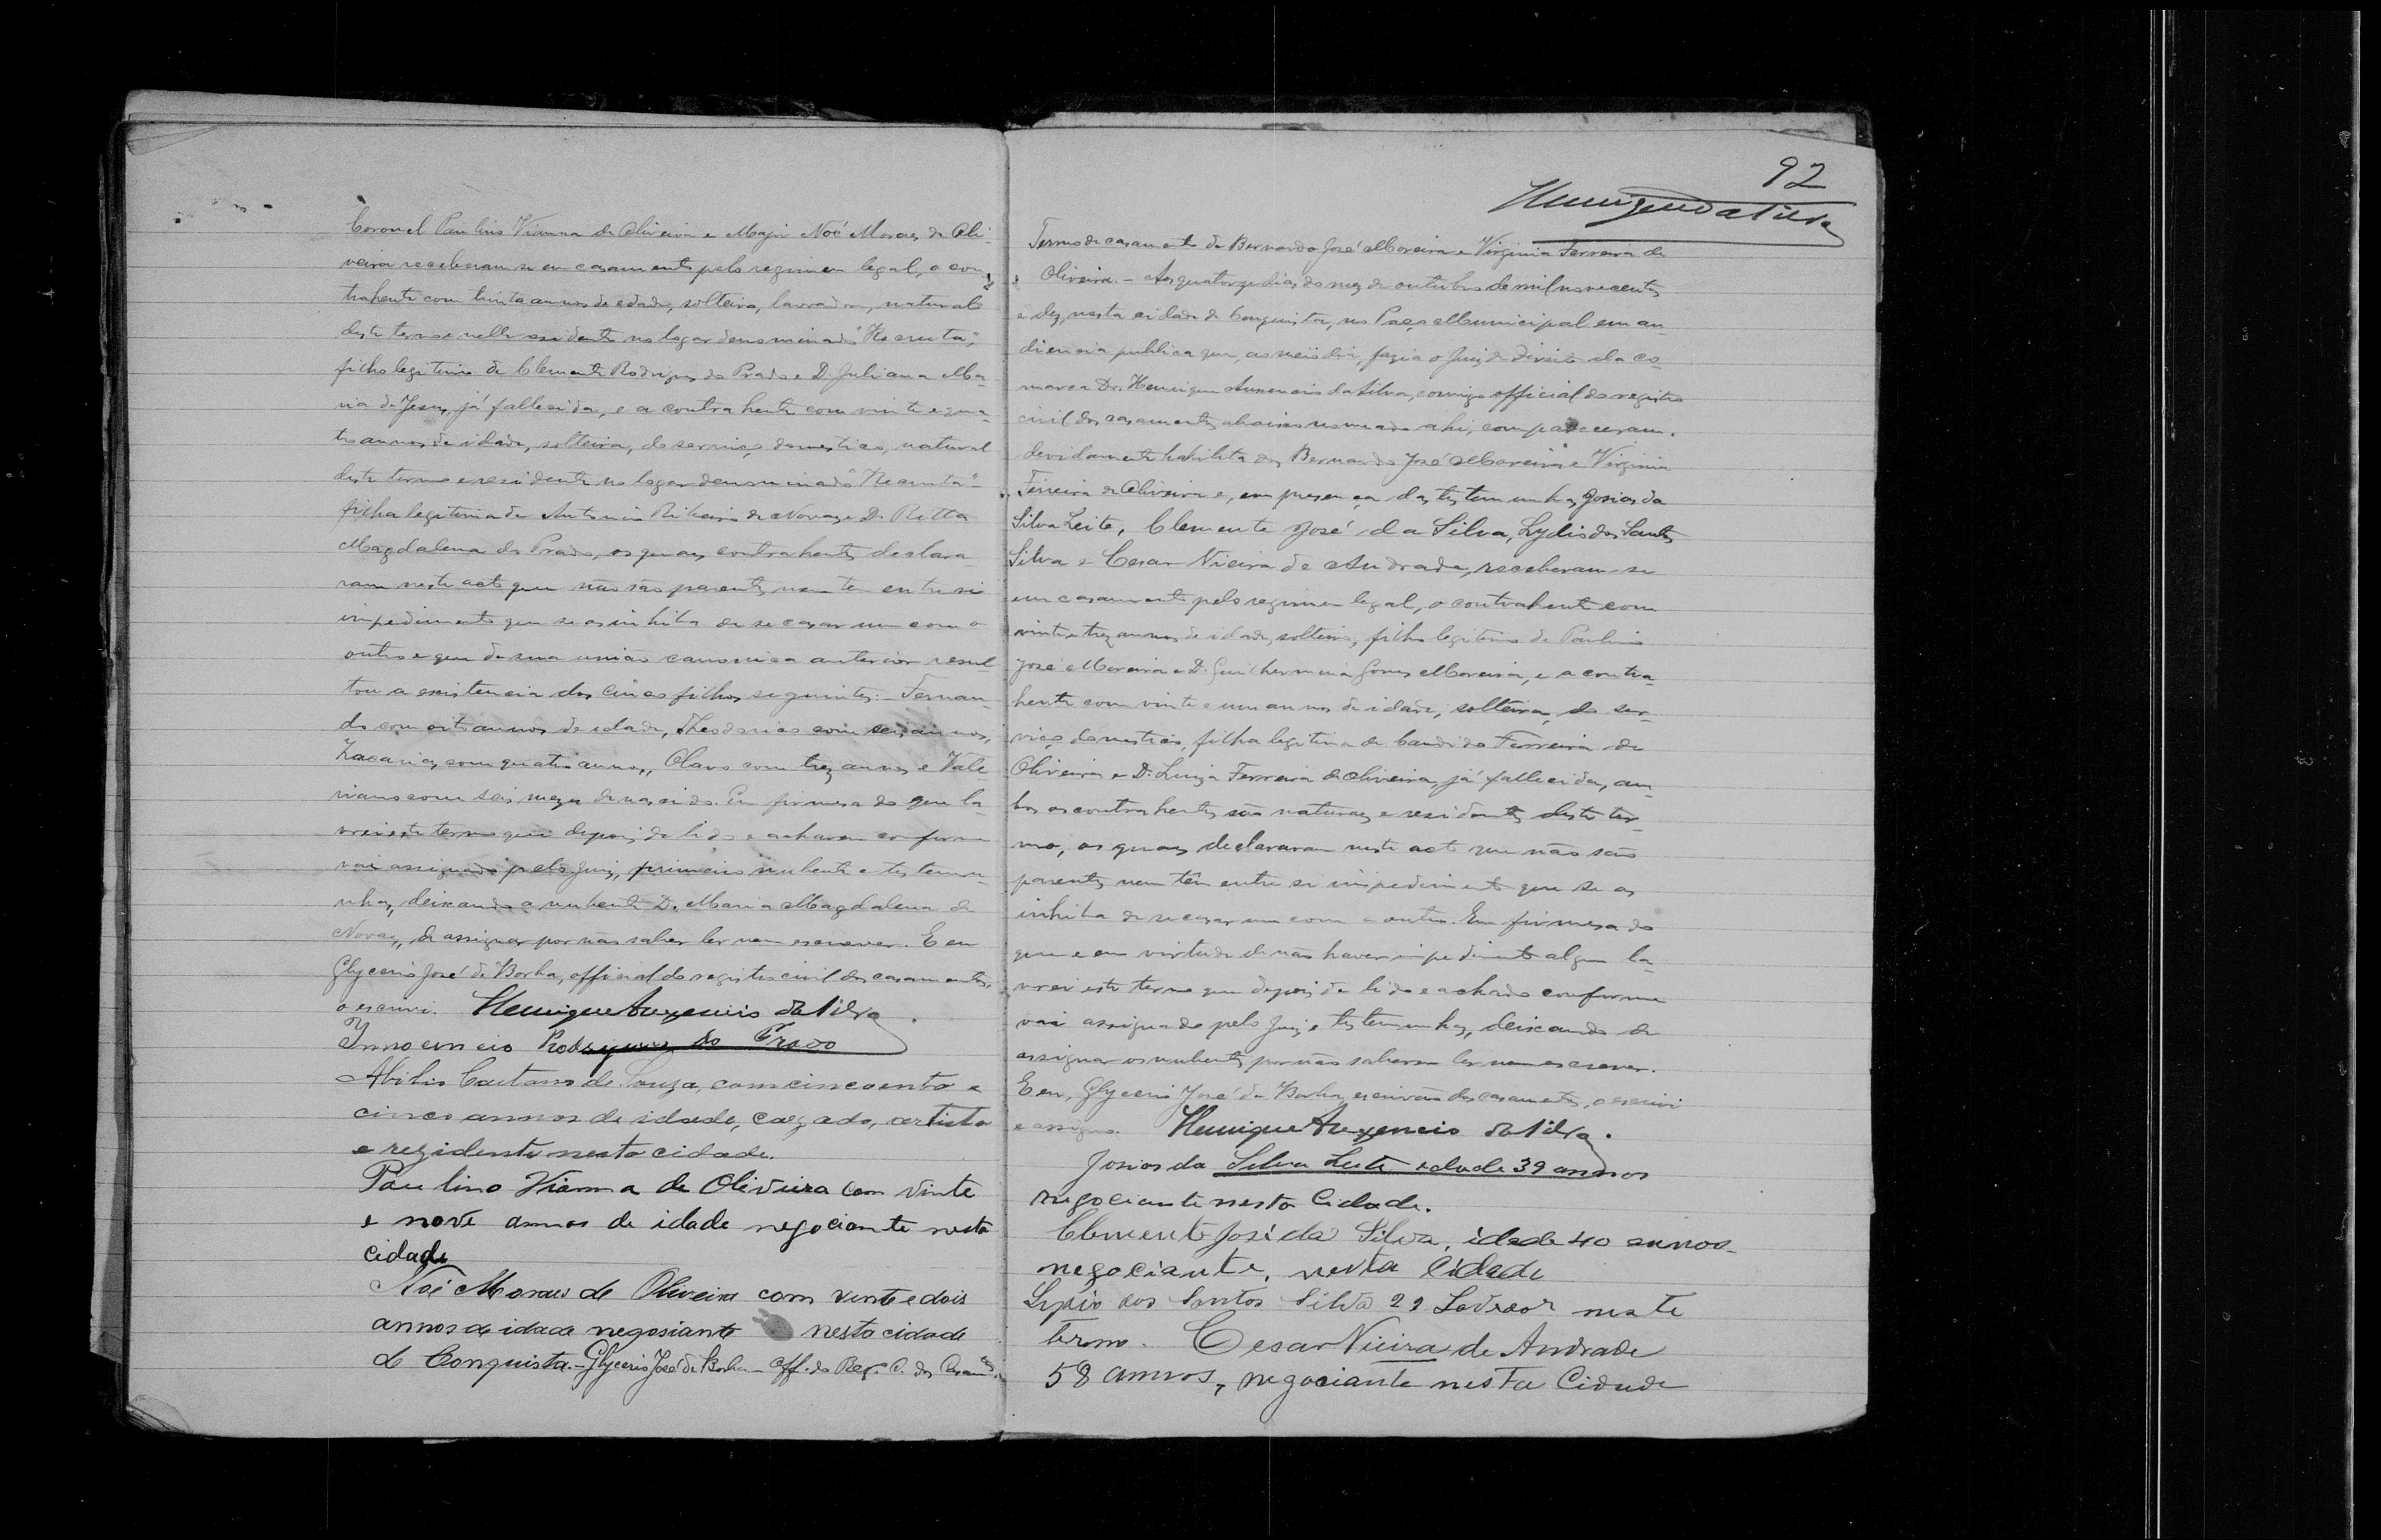 Coronel Paulino Vianna de Oliveira e Major Noé Moraes de Oli-
veira receberam-se em casamento pelo regimen legal, o con-
trahente com trinta annos de edade, solteiro, lavrador, natural
deste termo e nelle residente no logar denominado "Recruta",
filho legitimo de Clemente Rodrigues do Prado e D. Juliana Ma-
ria de Jesus, já fallecida, e a contrahente com vinte e qua-
tro annos de idade, solteira, do serviço domestico, natural
deste termo e residente no logar denominado "Recruta"
filha legitima de Antonio Ribeiro de Novaes e D. Ritta
Magdalena do Prado, os quaes contrahentes declara-
ram neste acto que não são parentes, nem tem entre si
impedimento que se os inhiba de se casar um com o
outro e que de sua união canonica anterior resul-
tou a existencia dos cinco filhos seguintes: - Fernan-
do com oito annos de edade, Theodorico com seis annos,
Zacarias com quatro annos, Olavo com trez annos e Vale-
riano com seis mezes de nascido. Em firmesa do que la-
vrei este termo que depois de lido e acharem conforme
vai assignado pelo Juiz, primeiro nubente e testemu-
nhas, deixando a nubente D. Maria Magdalena de
Novaes, de assignar por não saber ler nem escrever. E eu
Glycerio José de Borba, official do registro civil dos casamentos,
o escrevi. Henrique Auxencio da Silva.
Innocencio Rodrigues do Prado
Abilio Caetano de Souza, com cincoenta e
cinco annos de idade, cazado, artista
e rezidente nesta cidade.
Paulino Vianna de Oliveira com vinte
e nove annos de idade negociante nesta
cidade
Noé Moraes de Oliveira com vinte e dois
annos de idade negosiante nesta cidade
de Conquista. - Glycerio José de Borba - Off. do Reg. C. dos Casam.tos
92
Henrique da Silva
Termo de casamento de Bernardo José Moreira e Virginia Ferreira de
Oliveira. - Aos quatorze dias do mez de outubro de mil novecentos
e dez, nesta cidade de Conquista, no Paço Municipal em au-
diencia publica que, ao meio dia, fazia o Juiz de Direito da co-
marca Dr. Henrique Auxencio da Silva, comigo official do registro
civil dos casamentos abaixo nomeado ahi, compareceram.
devidamente habilitados Bernardo José Moreira e Virginia
Ferreira de Oliveira e, em presença das testemunhas Josias da
Silva Leite, Clemente José da Silva, Lydio dos Santos
Silva e Cesar Vieira de Andrade, receberam-se
em casamento pelo regimen legal, o contrahente com
vinte e trez annos de idade, solteiro, filho legitimo de Paulino
José Moreira e D. Guilhermina Gomes Moreira, e a contra-
hente com vinte e um annos de idade, solteira, do ser-
viço domestico, filha legitima de Candido Ferreira de
Oliveira e D. Luiza Ferreira de Oliveira, já fallecida, am-
bos os contrahentes são naturaes e residentes deste ter-
mo, os quaes declararam neste acto que não são
parentes nem têm entre si impedimento que se os
inhiba de se casar um com o outro. Em firmesa do
que e em virtude de não haver impedimento algum la-
vrei este termo que depois de lido e achado conforme
vai assignado pelo Juiz e testemunhas, deixando de
assignar os nubentes por não saberem ler nem escrever.
E eu, Glycerio José de Borba, escrivão dos casamentos, o escrevi
e assigno. Henrique Auxencio da Silva.
Josias da Silva Leite edade 39 annos
negociante nesta Cidade.
Clemente José da Silva, idade 40 annos
negociante, nesta Cidade
Lydio dos Santos Silva 29 Lavrador neste
termo. Cesar Vieira de Andrade
58 annos, negociante nesta Cidade